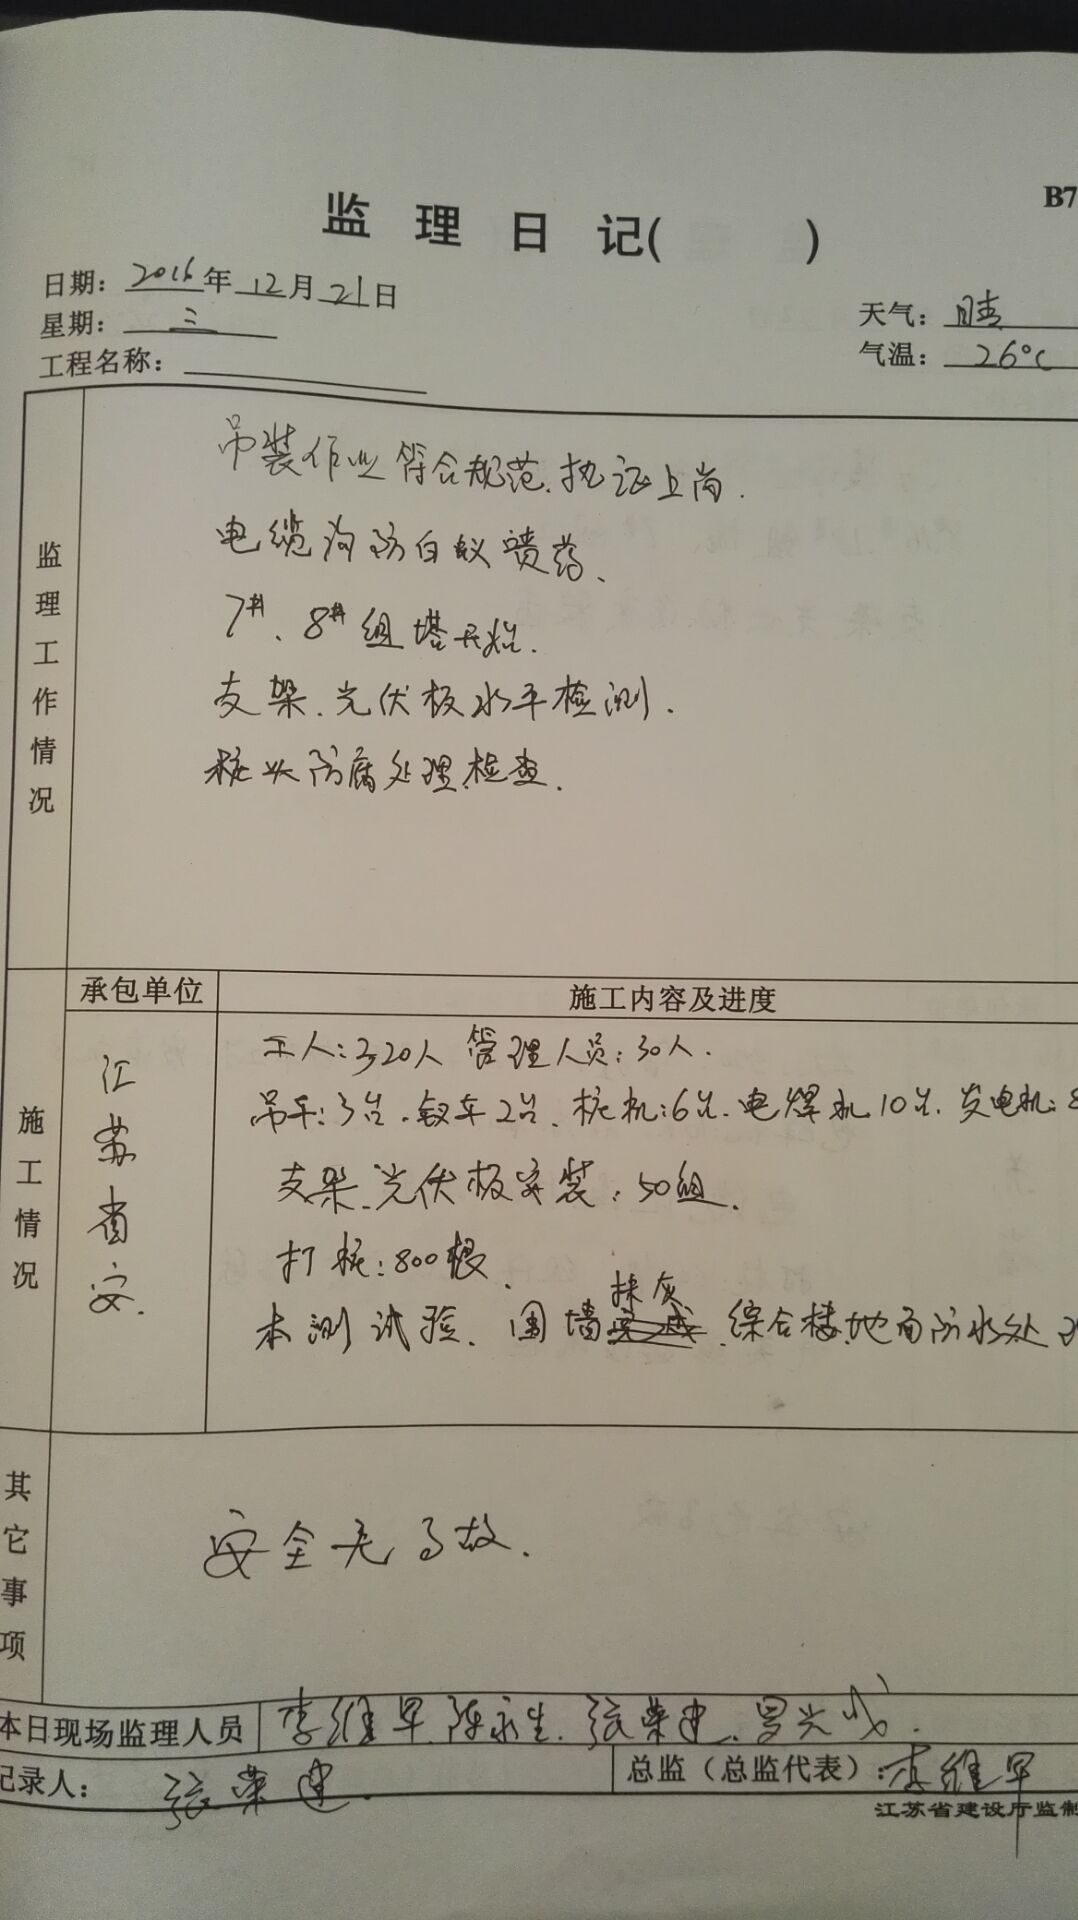 B7
监理日记( )
日期：2016年12月21日
星期：三
天气：晴
工程名称：
气温：26℃
监理工作情况
吊装作业符合规范、执证上岗.
电缆沟防白蚁喷药、
7#、8#组塔开始.
支架、光伏板水平检测.
桩头防腐处理、检查.
承包单位
施工内容及进度
施工情况
江苏省安.
工人:320人 管理人员:30人.
吊车:3台、钗车2台、桩机:6台、电焊机10台、发电机:8
支架、光伏板安装:50组.
打桩:800根、
抹灰
本测试验、围墙、综合楼、地面防水处理
其它事项
安全无事故.
本日现场监理人员 李维早、陈永生、张荣建、罗光成.
记录人： 张荣建.
总监（总监代表）:李维早
江苏省建设厅监制